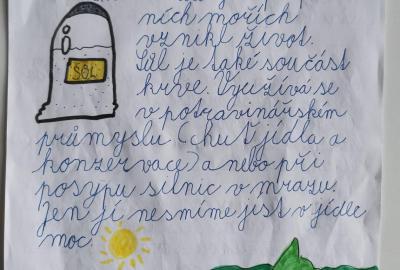 ních mořích
vznikl život.
Sůl je také součást
krve. Využívá se
v potravinářském
průmyslu (chuť jídla a
konzervace) a nebo při
posypu silnic v mrazu.
Jen jí nesmíme jíst v jídle
moc.
SŮL